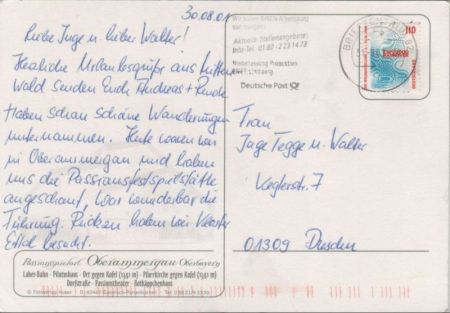 30.08.01
Liebe Inge u. lieber Walter!
Herzliche Urlaubsgrüße aus
Wald senden Euch Andreas +
Haben schon schöne Wanderungen
unternommen. Heute waren wir
in Oberammergau und haben
uns die Passionsfestspielstätte
angeschaut, war wunderbar die
Führung. haben wir Kloster
Ettal besucht.
Passionsspieldorf Oberammergau Oberbayern
Laber-Bahn · Pilatushaus · Ort gegen Kofel (1341 m) · Pfarrkirche gegen Kofel (1341 m)
Dorfstraße · Passionstheater · Rotkäppchenhaus
Aktuelle Stellenangebote:
Info-Tel. 01 80 - 2 23 14 73
Niederlassung Produktion
Deutsche Post
110
Frau
Inge Tegge u. Walter
Keglerstr. 7
01309 Dresden